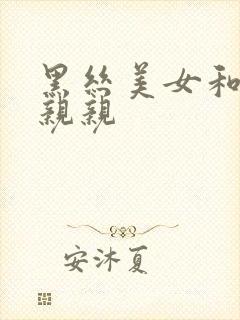 黑丝美女和
亲亲
安沐夏